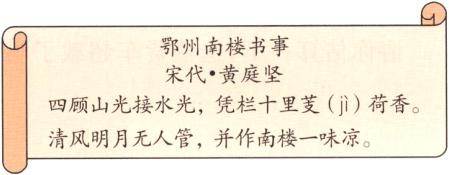 鄂州南楼书事
宋代•黄庭坚
四顾山光接水光，凭栏十里芰（jì）荷香。
清风明月无人管，并作南楼一味凉。